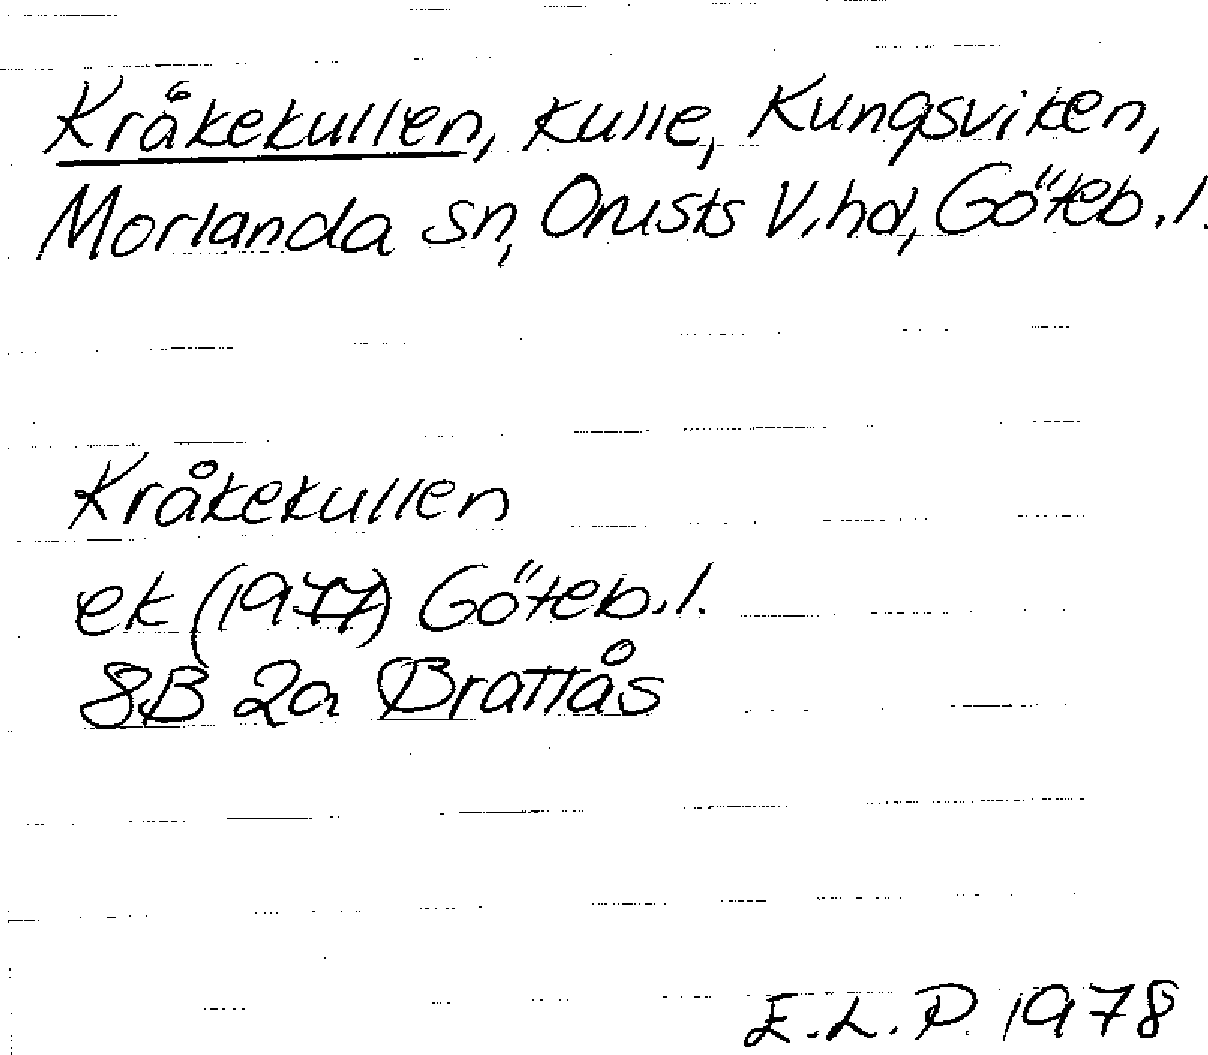 Kråkekullen, kulle, Kungsviken,
Morlanda sn, Orusts V.hd, Göteb.l.
Kråkekullen
ek (1977) Göteb.l.
8B 2a Brattås
E.L.P. 1978